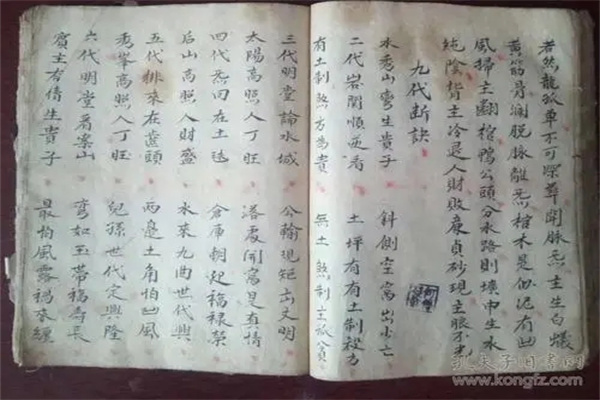 若然龍孤單不可深葬開脉炁主生白蟻
黄筋骨澜脱脉離炁棺木是似泥有凹
風掃主翻棺鴨公頭分水路則壙中生水
純陰皆主冷退人財敗廉貞砂現主眼不光
九代断訣
水秀山彎生貴子 斜側空窩出少亡
二代岩関順逆看 土坪有有土制殺方
有土制煞方為貴 無土煞制主孤貧
三代明堂論水城 公翰現矩出文明
太陽高照人丁旺 潘處開窩是真情
四代炁回在土毡 倉庫朝起福禄榮
后山高照人財盛 水來九曲世代興
五代排來在蓋頭 两邊土角怕凹風
秀峯高照人丁旺 兒孫世代定興隆
六代明堂看案山 彎如玉帶福寿長
賓主有情生貴子 最怕風露禍來纏
孔夫子旧书网
www.kongfz.com